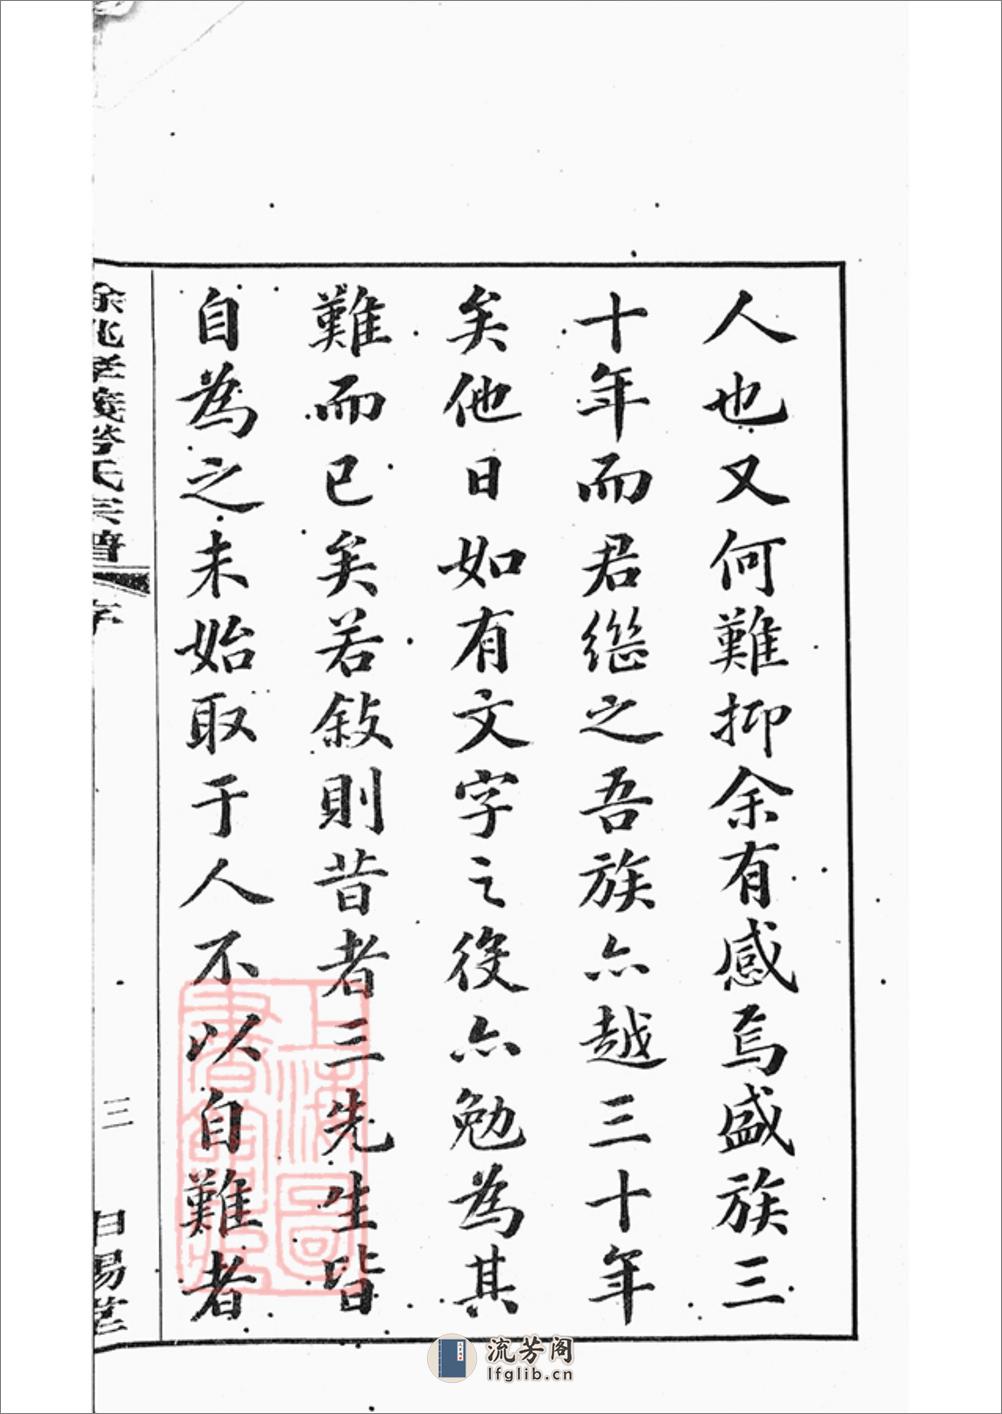 人也又何難抑余有感焉盛族三
十年而君繼之吾族亦越三十年
矣他日如有文字之後亦勉為其
難而已矣若敍則昔者三先生皆
自為之未始取于人不以自難者
餘姚孝義勞氏宗譜
序
三
上海圖書館藏
流芳阁
lfglib.cn